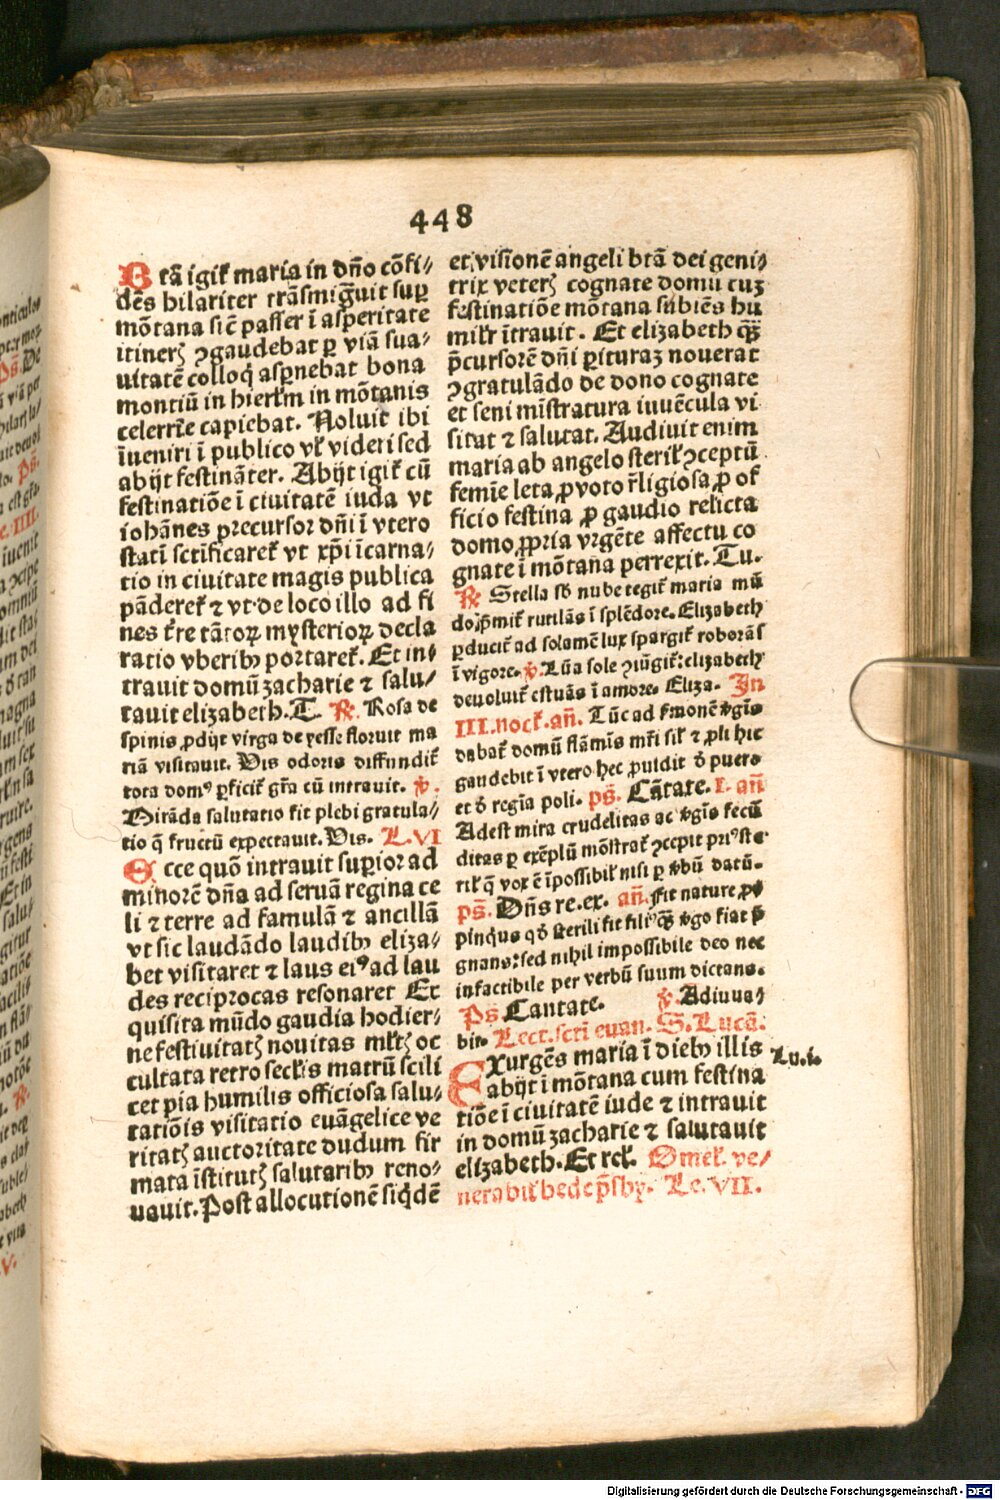 448
Btā igit͛ maria in dn̄o cōfi⸗
dēs hilariter trāsmigͣuit suꝑ
mōtana sicē passer ī asperitate
itinerꝫ ꝯgaudebat ꝑ viā sua⸗
uitatē colloqͥ asꝑnebat bona
montiū in hierlm̄ in mōtanis
celerrīe capiebat. Noluit ibi
īueniri ī publico vl͛ videri sed
abijt festināter. Abijt igit͛ cū
festinatiōe ī ciuitatē iuda vt
iohānes precursor dn̄i ī vtero
statī sctīficaret͛ vt xp̄i īcarna⸗
tio in ciuitate magis publica
pāderet͛ ⁊ vt de loco illo ad fi
nes tr̄e tātoꝝ mysterioꝝ decla
ratio vberibꝰ portaret͛. Et in⸗
trauit domū zacharie ⁊ salu⸗
tauit elizabeth. T. ℟. Rosa de
spinis ꝓdijt virga de yesse floruit ma
riā visitauit. Vis odoris diffundit͛
tota domꝰ ꝑficit͛ gr̄a cū intrauit. ℣.
Mirāda salutatio fit plebi gratula⸗
tio q̄ fructū expectauit. Vis. L. VI
Ecce quō intrauit suꝑior ad
minorē dn̄a ad seruā regina ce
li ⁊ terre ad famulā ⁊ ancillā
vt sic laudādo laudibꝰ eliza⸗
bet visitaret ⁊ laus eiꝰ ad lau
des reciprocas resonaret Ex
quisita mūdo gaudia hodier⸗
ne festiuitatꝫ nouitas ml̄tꝫ oc
cultata retro secl̄is matrū scili
cet pia humilis officiosa salu⸗
tatiōis visitatio euāgelice ve
ritatꝫ auctoritate dudum fir
mata īstitutꝫ salutaribꝰ reno⸗
uauit. Post allocutionē siqͥdē
et visionē angeli btā dei geni⸗
trix veterꝫ cognate domū cuꝫ
festinatiōe mōtana subiēs hu
milr̄ ītrauit. Et elizabeth qͣꝫ
p̄cursorē dn̄i ꝑituraꝫ nouerat
ꝯgratulādo de dono cognate
et seni mīstratura iuuēcula vi
sitat ⁊ salutat. Audiuit enim
maria ab angelo steril͛ ꝯceptū
femīe leta ꝓ voto r̄ligiosa ꝓ of
ficio festina ꝓ gaudio relicta
domo ꝓpria vrgēte affectu co
gnate ī mōtana perrexit. Tu.
℟ Stella sb̄ nube tegit͛ maria mū
do p̄mit͛ rutilās ī splēdore. Elizabeth
ꝑducit͛ ad solamē lux spargit͛ roborās
ī vigore. ℣. Lūa sole ꝯiūgit͛: elizabeth
deuoluit͛ estuās ī amore. Eliza. In
III. noct͛. an̄. Tūc ad ẜmonē v̄gīs
dabat͛ domū flāmīs mr̄i sil͛ ⁊ ꝓli hic
gaudebit ī vtero hec ꝓuidit d̄ puero
et d̄ regīa poli. ps̄. Cātate. I. an̄
Adest mira crudelitas ac v̄gīs fecū
ditas ꝑ exēplū mōstrat͛ ꝯcepit priꝰ ste
ril͛ q̄ vox ē īpossibil͛ nisi ꝑ v̄bū datū.
ps̄. Dn̄s re. ex. an̄. fit nature ꝓ⸗
pinqus qd̄ sterili fit filiꝰ qͣꝫ v̄go fiat p̄
gnans: sed nihil impossibile deo nec
infactibile per verbū suum dictans.
Ps̄ Cantate. ℣. Adiuua⸗
bit. Lect. scti euan. S. Lucā.
Exurgēs maria ī diebꝰ illis Lu. i.
abijt ī mōtana cum festina
tiōe ī ciuitatē iude ⁊ intrauit
in domū zacharie ⁊ salutauit
elizabeth. Et rel̄. Omel͛. ve⸗
nerabil͛ bede p̄sby. Le. VII.
Digitalisierung gefördert durch die Deutsche Forschungsgemeinschaft - DFG